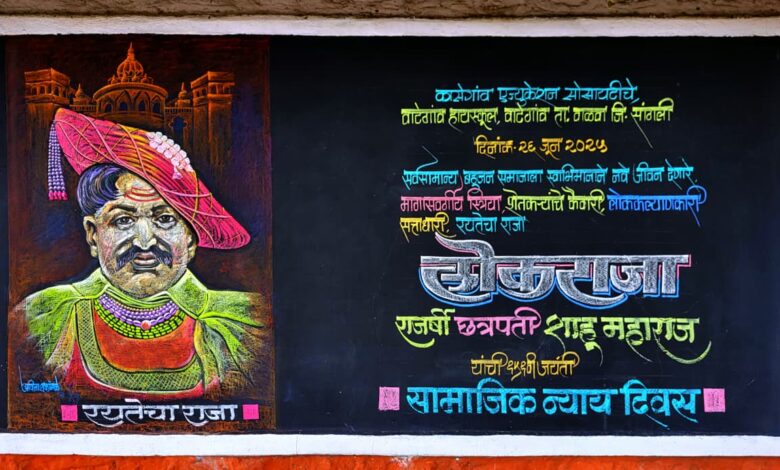 कासेगांव एज्युकेशन सोसायटीचे,
वाटेगांव हायस्कूल, वाटेगांव ता. वाळवा जि. सांगली
दिनांक. २६ जून २०२५
सर्वसामान्य बहूजन समाजाला स्वाभिमानाने नवे जीवन देणारे,
मागासवर्गीय स्त्रिया, शेतकऱ्यांचे कैवारी, लोककल्याणकारी
सत्ताधारी, रयतेचा राजा
लोकराजा
राजर्षी छत्रपती शाहू महाराज
यांची जयंती
सामाजिक न्याय दिवस
रयतेचा राजा